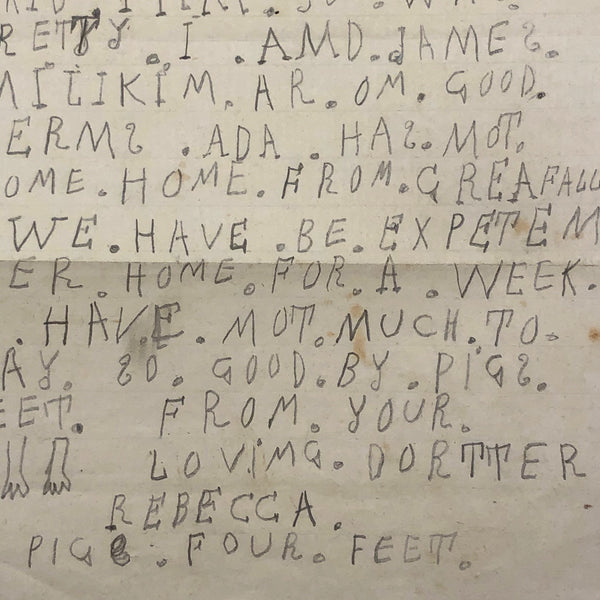 RETTY . I . AMD . JAMES .
MILIKIM . AR . OM . GOOD .
ERMS . ADA . HAS . MOT .
OME . HOME . FROM . GREAFALL
WE . HAVE . BE . EXPETEM
ER . HOME . FOR . A . WEEK .
. HAVE . MOT . MUCH . TO .
AY . SO . GOOD . BY . PIGS .
EET . FROM . YOUR .
LOVIMG . DORTTER
REBECCA .
PIGS . FOUR . FEET .